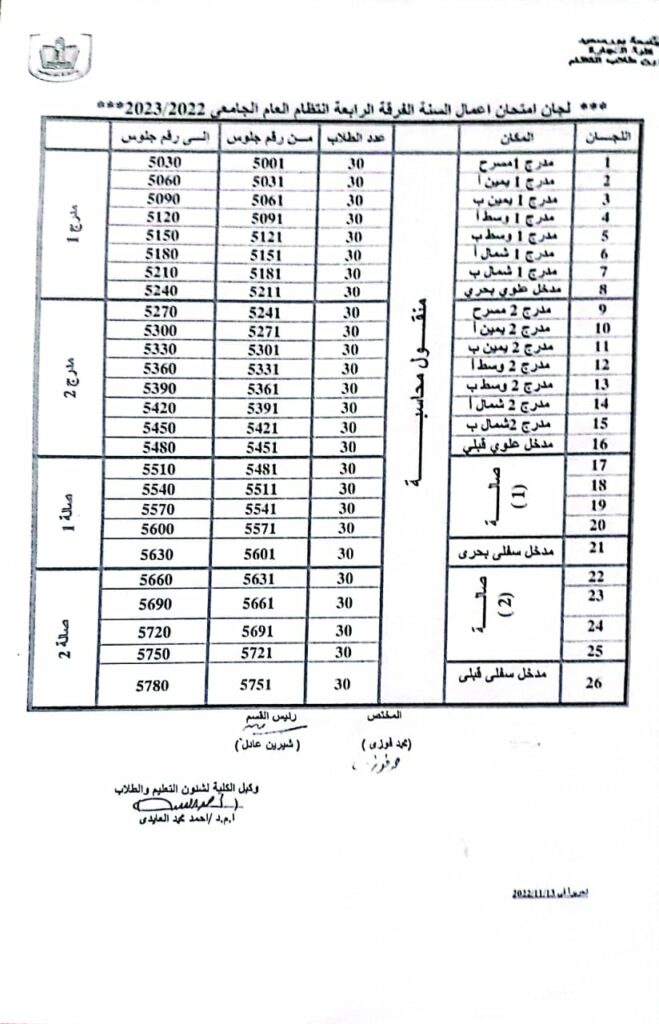 جامعة بورسعيد
كلية التجارة
شئون طلاب النظام
*** لجان امتحان اعمال السنة الفرقة الرابعة انتظام العام الجامعي 2023/2022***
اللجان المكان عدد الطلاب من رقم جلوس إلى رقم جلوس
1 مدرج 1مسرح 30 5001 5030
2 مدرج 1 يمين أ 30 5031 5060
3 مدرج 1 يمين ب 30 5061 5090
4 مدرج 1 وسط أ 30 5091 5120
5 مدرج 1 وسط ب 30 5121 5150
6 مدرج 1 شمال أ 30 5151 5180
7 مدرج 1 شمال ب 30 5181 5210
8 مدخل علوي بحري 30 5211 5240
مدرج 1
9 مدرج 2 مسرح 30 5241 5270
10 مدرج 2 يمين أ 30 5271 5300
11 مدرج 2 يمين ب 30 5301 5330
12 مدرج 2 وسط أ 30 5331 5360
13 مدرج 2 وسط ب 30 5361 5390
14 مدرج 2 شمال أ 30 5391 5420
15 مدرج 2شمال ب 30 5421 5450
16 مدخل علوي قبلي 30 5451 5480
مدرج 2
منقول محاسبة
17 30 5481 5510
18 30 5511 5540
19 30 5541 5570
20 30 5571 5600
صالة (1)
21 مدخل سفلى بحرى 30 5601 5630
صالة 1
22 30 5631 5660
23 30 5661 5690
24 30 5691 5720
25 30 5721 5750
صالة (2)
26 مدخل سفلى قبلى 30 5751 5780
صالة 2
المختص رئيس القسم
(محمد فوزى) (شيرين عادل)
وكيل الكلية لشئون التعليم والطلاب
أ.م.د /احمد محمد العايدى
2022/11/13